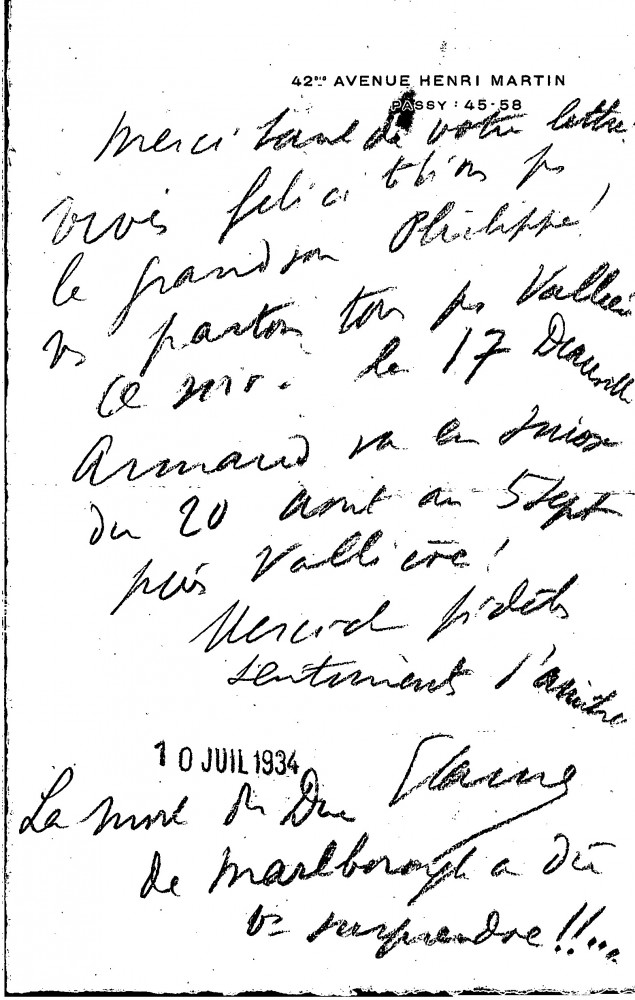 42bis AVENUE HENRI MARTIN
PASSY : 45-58
Merci de votre lettre.
vives félicitations pr
le grandson Philippe!
ns partons tous pr Vallière
ce soir. le 17 Deauville
Armand va en Suisse
du 20 aout au 5 Sept
puis Vallière!
Merci d fidèles
sentiments
10 JUIL 1934
La mort du Duc
de Marlborough a dû
vs surprendre!!...